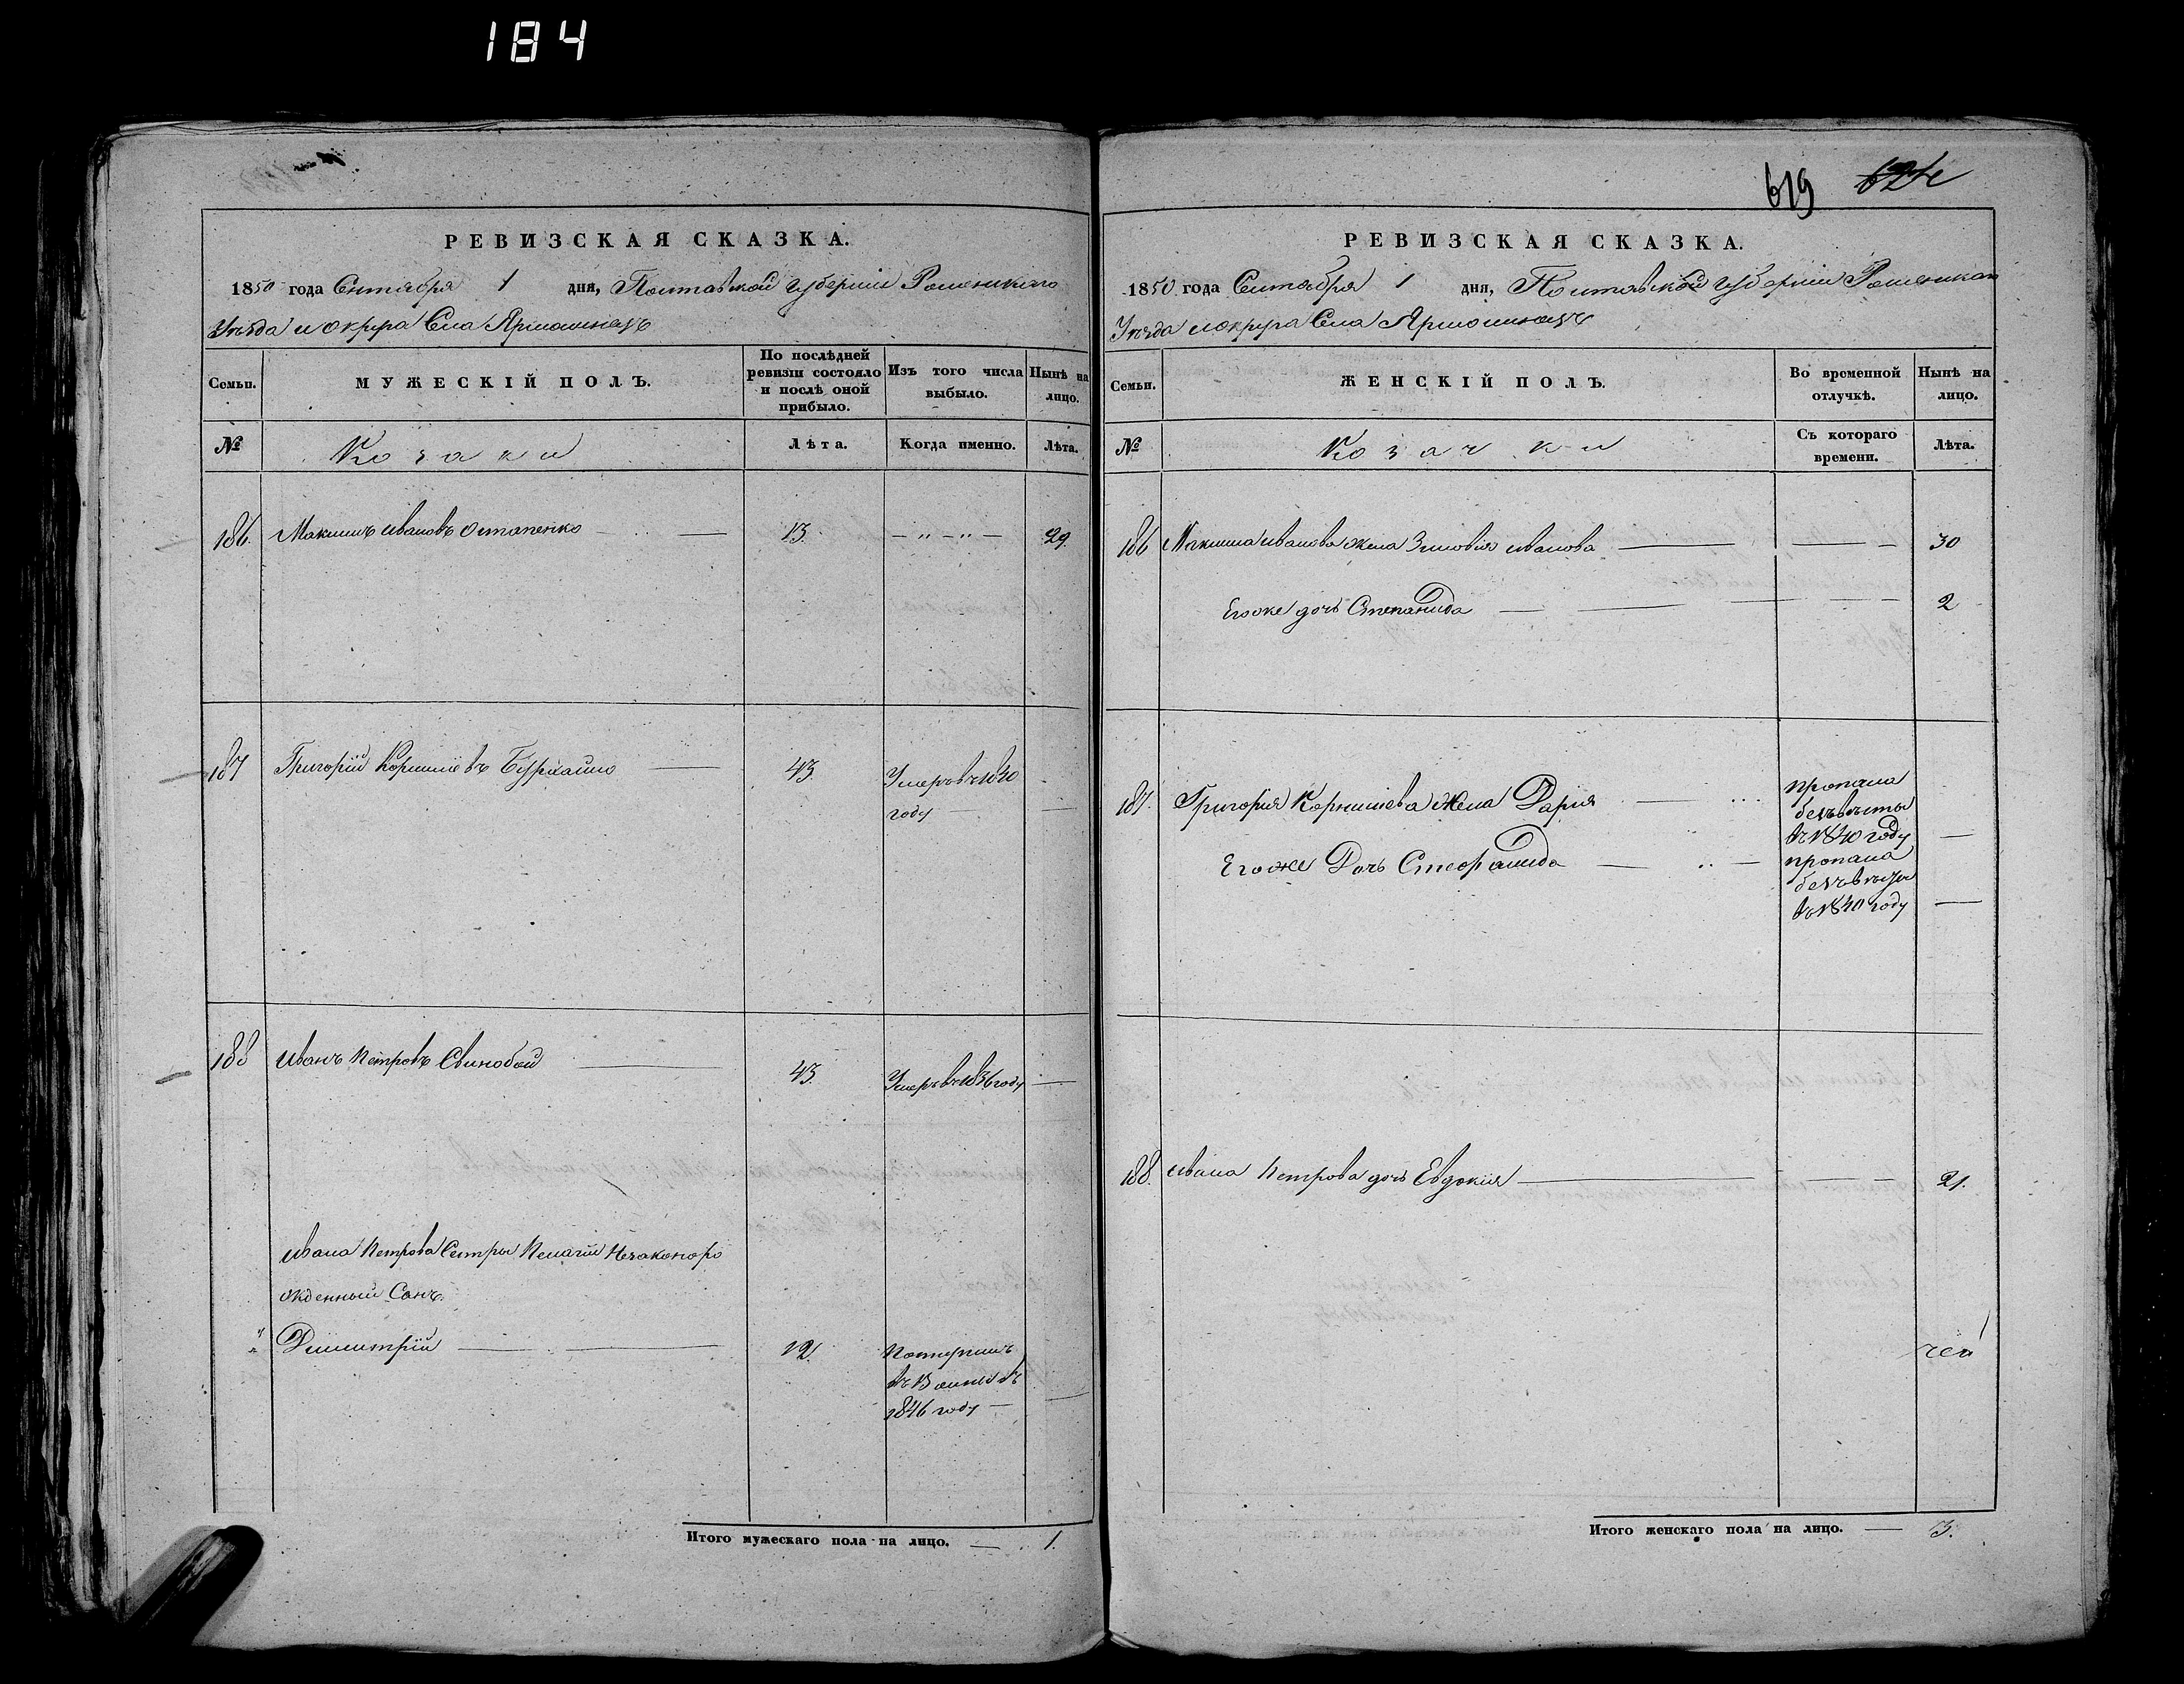 184
РЕВИЗСКАЯ СКАЗКА.
1850 года Сентября 1 дня, Полтавской губернии Роменскаго
Уезда и округа Села Ярмолинецъ
Семьи.
МУЖЕСКІЙ ПОЛЪ.
По послѣдней ревизіи состояло и послѣ оной прибыло.
Изъ того числа выбыло.
Нынѣ на лицо.
№
Козаки
Лѣта.
Когда именно.
Лѣта.
186. Максимъ Ивановъ Остапенко 13. – „ – „ – 29.
187 Григорій Корниліевъ 43. Умеръ въ 1840
году
188 Иванъ Петровъ Свинобой 43. Умеръ въ 1836 году
Ивана Петрова Сестры Пелагіи Незаконоро
жденный Сынъ
Димитрій 12.
въ
1846 году
Итого мужескаго пола на лицо. 1.
619 624
РЕВИЗСКАЯ СКАЗКА.
1850 года Сентября 1 дня, Полтавской губерніи Роменскаго
Уезда и округа Села Ярмолинецъ
Семьи.
ЖЕНСКІЙ ПОЛЪ.
Во временной отлучкѣ.
Нынѣ на лицо.
№
Козачки
Съ котораго времени.
Лѣта.
186 Максима Иванова жена Зиновія Иванова 30
Егоже дочь Степанида 2
187. Григорія Корниліева жена Дарія пропала
безъ вѣсти
въ 1840 году
Егоже Дочь Стефанида пропала
безъ вѣсти
въ 1840 году
188. Ивана Петрова дочь Евдокія 21.
Итого женскаго пола на лицо. 3.